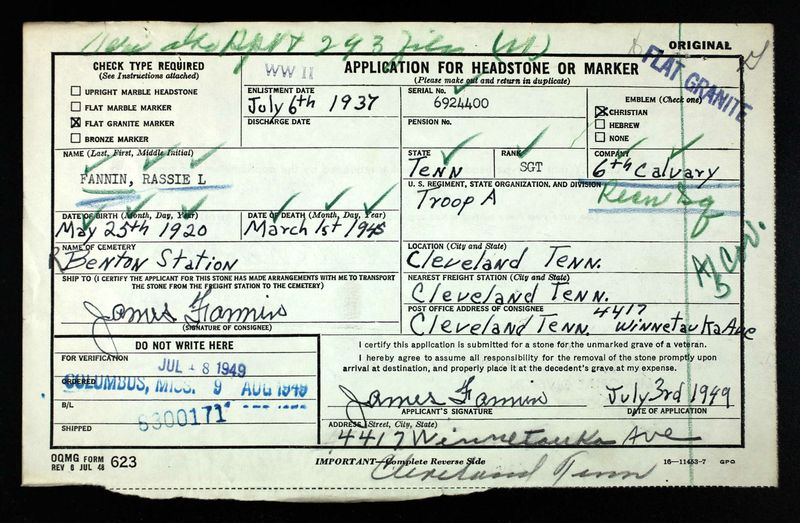 ORIGINAL
CHECK TYPE REQUIRED
(See Instructions attached)
UPRIGHT MARBLE HEADSTONE
FLAT MARBLE MARKER
☒ FLAT GRANITE MARKER
BRONZE MARKER
WW II
APPLICATION FOR HEADSTONE OR MARKER
(Please make out and return in duplicate)
FLAT GRANITE
ENLISTMENT DATE
July 6th 1937
DISCHARGE DATE
SERIAL No.
6924400
PENSION No.
EMBLEM (Check one)
☒ CHRISTIAN
HEBREW
NONE
NAME (Last, First, Middle Initial)
FANNIN, RASSIE L
STATE
Tenn
RANK
SGT
COMPANY
6th Calvary
U. S. REGIMENT, STATE ORGANIZATION, AND DIVISION
Troop A
DATE OF BIRTH (Month, Day, Year)
May 25th 1920
DATE OF DEATH (Month, Day, Year)
March 1st 1945
NAME OF CEMETERY
Benton Station
LOCATION (City and State)
Cleveland Tenn.
SHIP TO (I CERTIFY THE APPLICANT FOR THIS STONE HAS MADE ARRANGEMENTS WITH ME TO TRANSPORT
THE STONE FROM THE FREIGHT STATION TO THE CEMETERY)
James Fannin
(SIGNATURE OF CONSIGNEE)
NEAREST FREIGHT STATION (City and State)
Cleveland Tenn.
POST OFFICE ADDRESS OF CONSIGNEE
4417
Cleveland Tenn. Winnetauka Ave
DO NOT WRITE HERE
FOR VERIFICATION
JUL 8 1949
ORDERED
COLUMBUS, MISS. 9 AUG 1949
B/L
6300171
SHIPPED
I certify this application is submitted for a stone for the unmarked grave of a veteran.
I hereby agree to assume all responsibility for the removal of the stone promptly upon
arrival at destination, and properly place it at the decedent's grave at my expense.
James Fannin
July 3rd 1949
APPLICANT'S SIGNATURE
DATE OF APPLICATION
ADDRESS (Street, City, State)
4417 Winnetauka Ave
Cleveland Tenn
OQMG FORM
REV 8 JUL 48
623
IMPORTANT—Complete Reverse Side
16—11453-7 GPO